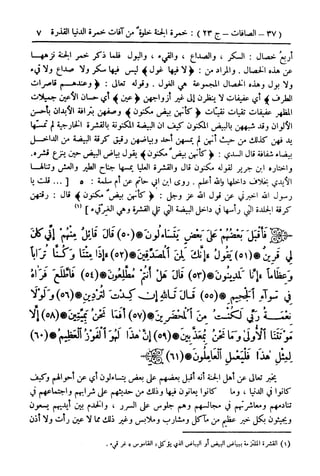 (٣٧ – الصافات – ج ٢٣) : خمرة الجنة خلوٌ من آفات خمرة الدنيا القذرة ٧
أربعُ خصال : السكر ، والصداع ، والقيء ، والبول فلما ذكر خمر الجنة نزهها
عن هذه الخصال . والمراد من : ﴿ لا فيها غول ﴾ ليس فيها سكر ولا صداع ولا قيء
ولا بول وهذه الخصال المجموعة هي الغول . وقوله تعالى : ﴿ وعندهم قاصرات
الطرف ﴾ أي عفيفات لا ينظرن إلى غير أزواجهن ﴿ عين ﴾ أي حسان الأعين جميلات
المظهر عفيفات تقيات نقيات ﴿ كأنهن بيض مكنون ﴾ وصفهن بترافة الأبدان بأحسن
الألوان وقد شبههن بالبيض المكنون كيف ان البيضة المكنونة بالقشرة الخارجية لم تمسها
يد فهن كذلك من حيث أنهن لم يمسهن أحد وبياضهن رقيق كرقة البيضة من الداخل
بيضاء شفافة قال السدي : ﴿ كأنهن بيض مكنون ﴾ يقول بياض البيض حين ينزع قشره.
واختاره ابن جرير لقوله مكنون قال والقشرة العليا يمسها جناح الطير والعش وتنالها
الأيدي بخلاف داخلها والله أعلم . روى ابن ابي حاتم عن أم سلمة : ه [ ... قلت يا
رسول الله اخبرني عن قول الله عز وجل : ﴿ كأنهن بيض مكنون ﴾ قال : رقتهن
كرقة الجلدة التي رأيتها في داخل البيضة التي تلي القشرة وهي الغرقيء ] (١)
فَأَقْبَلَ بَعْضُهُمْ عَلَىٰ بَعْضٍ يَتَسَاءَلُونَ (٥٠) قَالَ قَائِلٌ مِنْهُمْ إِنِّي كَانَ
لِي قَرِينٌ (٥١) يَقُولُ ءَإِنَّكَ لَمِنَ الْمُصَدِّقِينَ (٥٢) ءَإِذَا مِتْنَا وَكُنَّا تُرَابًا
وَعِظَامًا ءَإِنَّا لَمَدِينُونَ (٥٣) قَالَ هَلْ أَنْتُمْ مُطَّلِعُونَ (٥٤) فَاطَّلَعَ فَرَآهُ
فِي سَوَاءِ الْجَحِيمِ (٥٥) قَالَ تَاللَّهِ إِنْ كِدْتَ لَتُرْدِينِ (٥٦) وَلَوْلَا
نِعْمَةُ رَبِّي لَكُنْتُ مِنَ الْمُحْضَرِينَ (٥٧) أَفَمَا نَحْنُ بِمَيِّتِينَ (٥٨) إِلَّا
مَوْتَتَنَا الْأُولَىٰ وَمَا نَحْنُ بِمُعَذَّبِينَ (٥٩) إِنَّ هَٰذَا لَهُوَ الْفَوْزُ الْعَظِيمُ (٦٠)
لِمِثْلِ هَٰذَا فَلْيَعْمَلِ الْعَامِلُونَ (٦١)
يخبر تعالى عن أهل الجنة أنه أقبل بعضهم على بعض يتساءلون أي عن أحوالهم وكيف
كانوا في الدنيا ، وما كانوا يعانون فيها وذلك من حديثهم على شرابهم واجتماعهم في
تنادمهم ومعاشرتهم في مجالسهم وهم جلوس على السرر ، والخدم بين أيديهم يسعون
ويجيئون بكل خير عظيم من مآكل ومشارب وملابس وغير ذلك مما لا عين رأت ولا أذن
(١) القشرة الملتزقة ببياض البيض أو البياض الذي يؤكل . القاموس « غرقيء ».